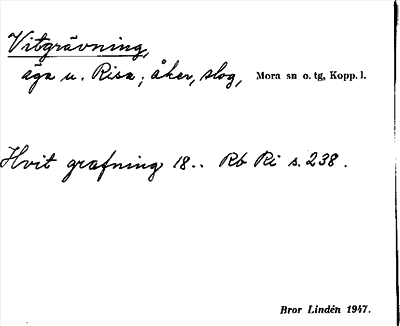 Vitgrävning,
äga u. Risa; åker, slog, Mora sn o. tg, Kopp. l.
Hvit grafning 18.. Rb Ri s. 238.
Bror Lindén 1947.